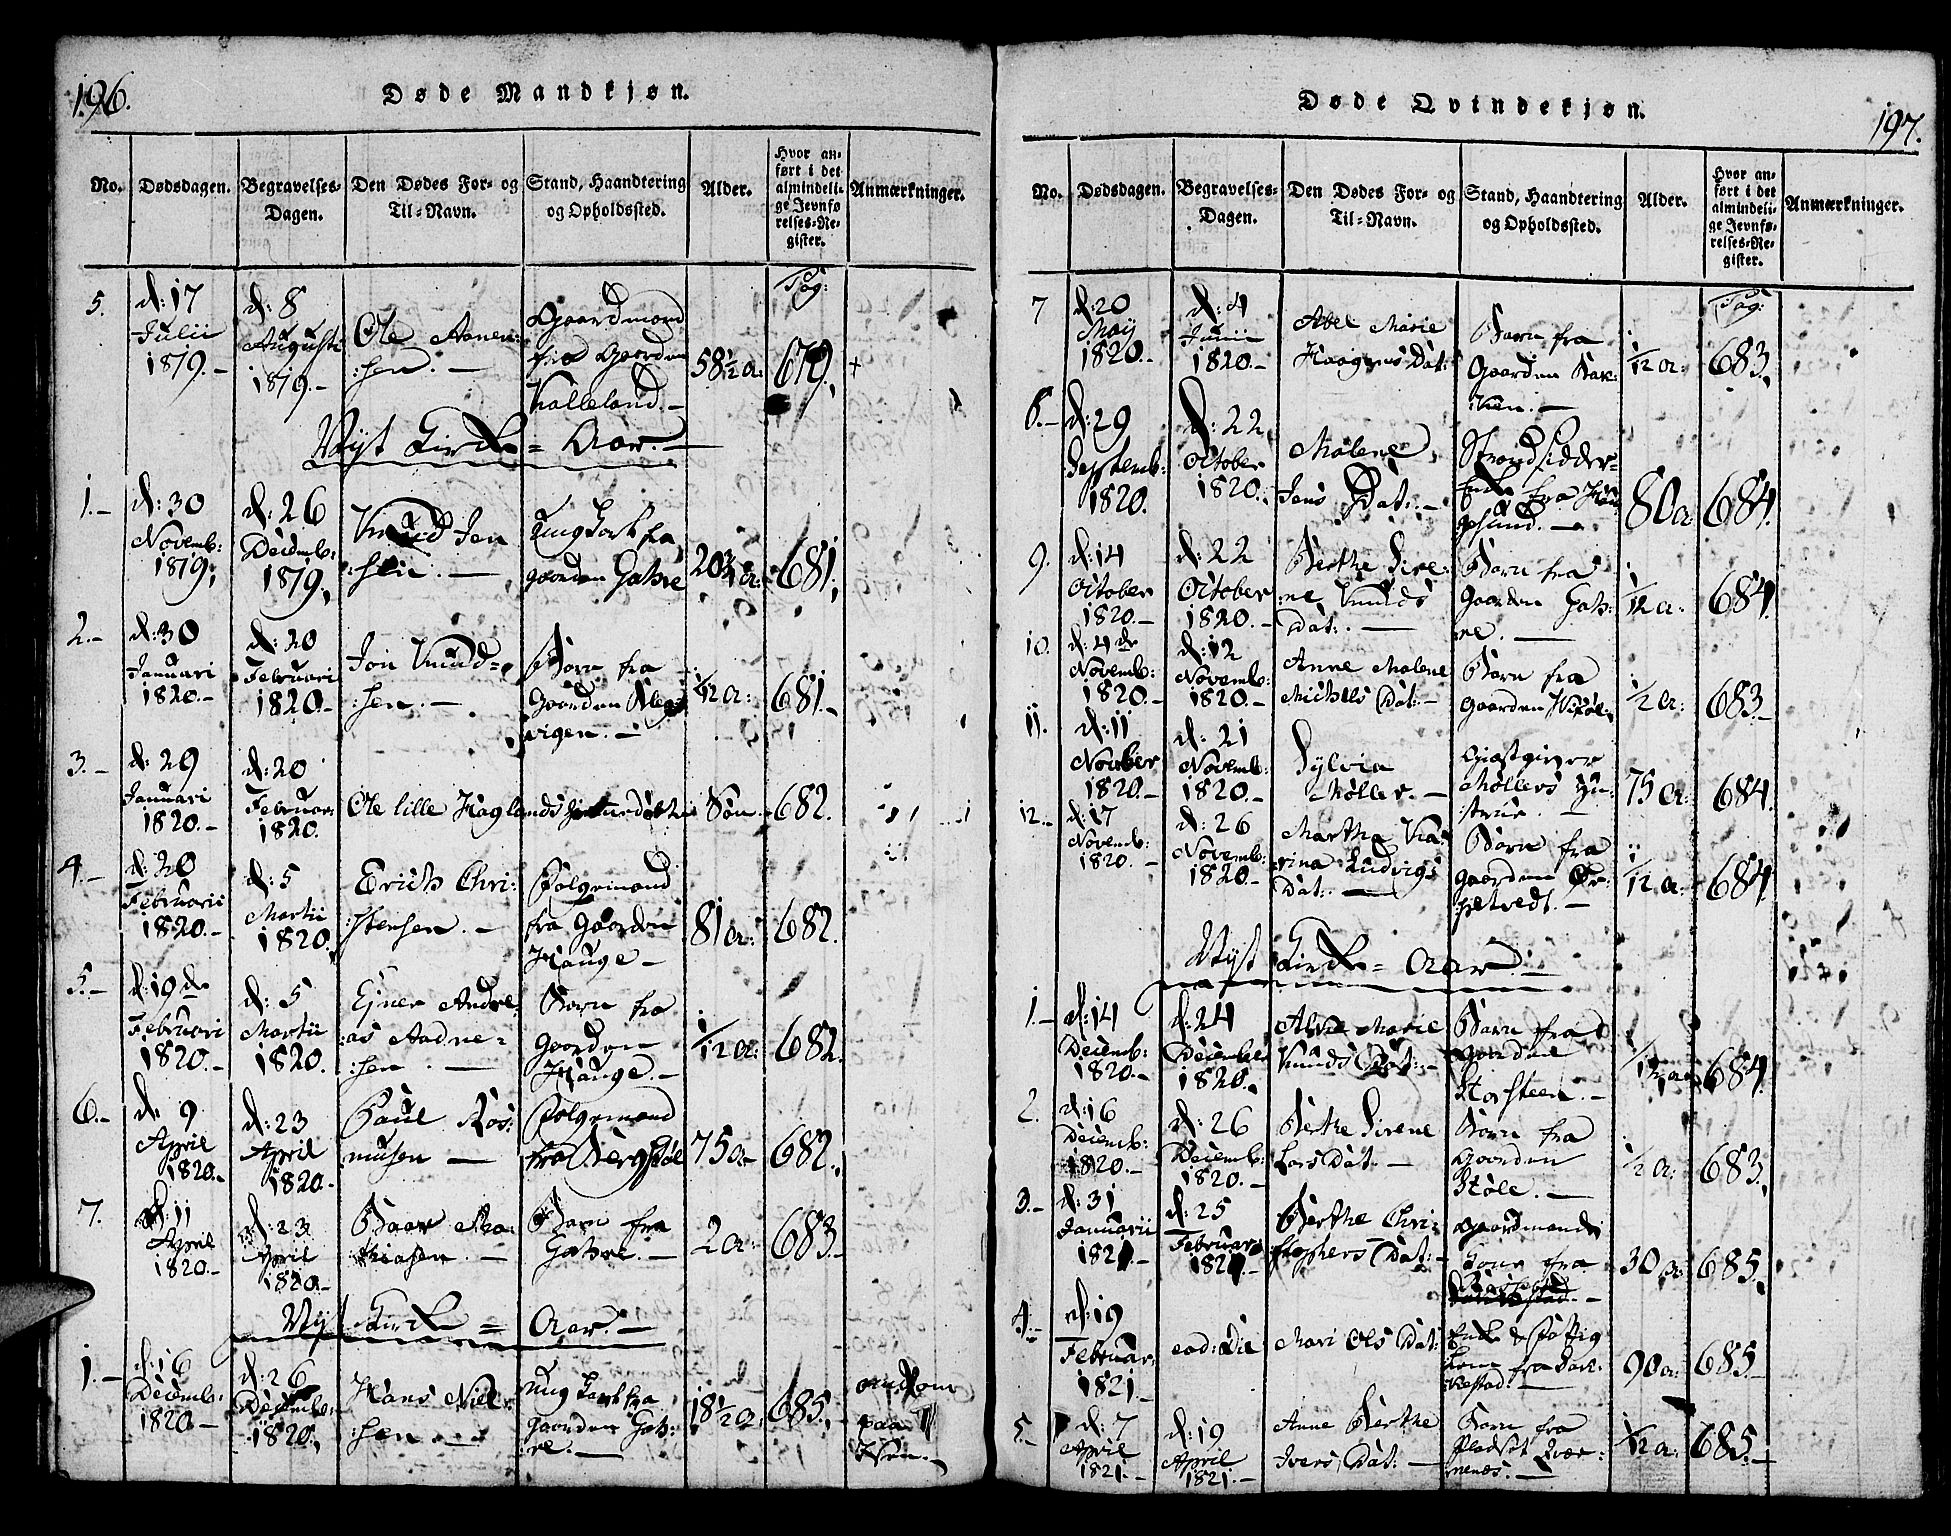 196.
Døde Mandkjøn.
No. Dødsdagen. Begravelses-Dagen. Den Dødes For- og Til-Navn. Stand, Haandtering og Opholdssted. Alder. Hvor anført i det almindelige Jevnførelses-Register. Anmærkninger.
Pag:
5. d: 17 Julii 1819.- d: 8 Augusti 1819.- Ole Aanen:sen.- Gaardmand fra Gaarden Kalleland.- 58 1/2 a: 679. +
Nyt Kirke-Aar.-
1.- d: 30 Novemb: 1819. d: 26 Decemb: 1819. Knud Jen:sen.- Ung Karl fra gaarden 20 3/4 a: 681.
2.- d: 30 Januari 1820.- d: 20 Februari 1820.- Jon Knud:sen.- Barn fra Gaarden 1/12 a: 681.-
3.- d: 29 Januari 1820.- d: 20 Februar: 1820. Ole lille Søn. 682.
4.- d: 20 Februarii 1820.- d: 5 Martii 1820. Erich Chri:stensen.- Folgemand fra Gaarden Hauge- 81 a: 682.
5.- d: 19de Februari 1820.- d: 5 Martii 1820. Ejner Andre:as Aadne:sen.- Barn fra Gaarden Hauge.- 1/12 a: 682.
6.- d: 9 April 1820.- d: 23 April 1820.- Paul Ras:musen- Folgemand fra 75 a- 682.
7. d: 11 April 1820.- d: 23 April 1820.- Barn fra 2 a: 683.-
Nyt Kirke-Aar.-
1.- d: 16 Decemb: 1820- d: 26 Decemb: 1820. Hans Niel:sen.- Ung Karl fra Gaarden 18 1/2 a: 685. omkom paa Isen.-
197.
Døde Qvindekjøn.
No. Dødsdagen. Begravelses-Dagen. Den Dødes For- og Til-Navn. Stand, Haandtering og Opholdssted. Alder. Hvor anført i det almindelige Jevnførelses-Register. Anmærkninger.
Pag:
7 d: 20 Maij 1820.- d: 4 Junii 1820.- Abel Marie Haagens Dat: Barn fra Gaarden 1/12 a: 683.
d: 29 Septemb: 1820. d: 22 October 1820. Malene Jens Dat:.- Strandsidder-Enke fra 80 a: 684.
9. d: 14 October 1820.- d: 22 October 1820.- Berthe Sire:ne Knuds Dat:.- Barn fra Gaarden 1/12 a: 684.
10. d: 4de Novemb: 1820.- d: 12 Novemb: 1820.- Anne Malene Michels Dat:- Barn fra gaarden 1/2 a: 683.-
11. d: 11 1820.- d: 21 Novemb: 1820.- Sylvia Møller.- Giæstgiver Møllers Hu:strue.- 75 a: 684.
12.- d: 17 Novemb: 1820.- d: 26 Novemb: 1820.- Marthe Ka:rina Ludvigs Dat:- Barn fra gaarden 1/12 a: 684.
Nyt Kirke-Aar.-
1.- d: 14 Decemb: 1820.- d: 24 December 1820.- Marie Knuds Dat:.- Barn fra gaarden Storsteen.- 684.
2. d: 16 Decemb: 1820.- d: 26 Decemb: 1820.- Berthe Sirene Lars Dat:.- Barn fra Gaarden Støle.- 1/2 a: 683.
3.- d: 31 Januarii 1821.- d: 25 Februari 1821.- Berthe Chri:stophers Dat:- Gaardmands Kone fra 30 a: 685.
4.- d: 19 Februar: 1821.- eod: die Mari Ols Dat: Enke & Fattig Lem fra 90 a: 685.-
5.- d: 7 April 1821.- d: 19 April 1821.- Anne Berthe Ivers Dat:- Barn fra Pladset 1/12 a: 685.-